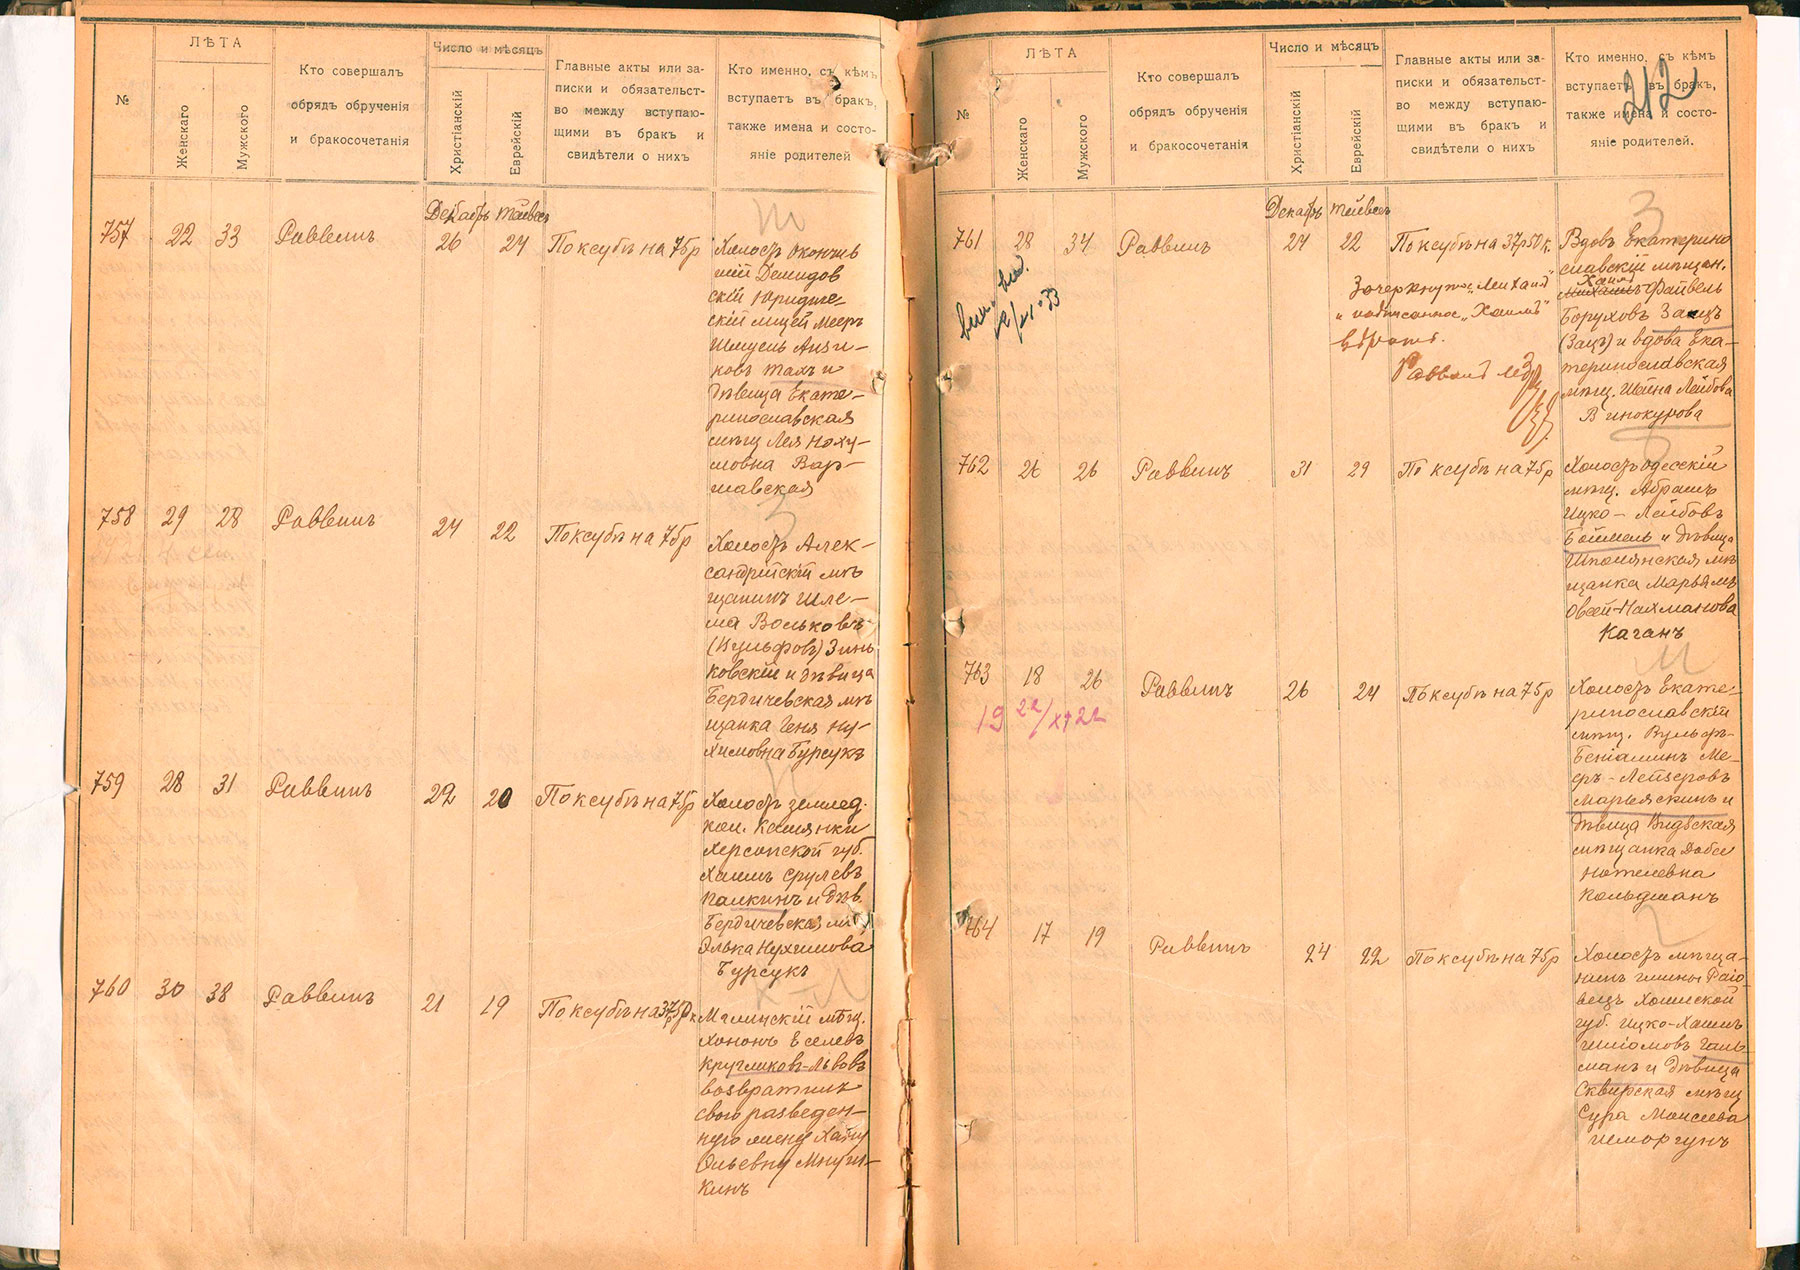 №
ЛѢТА
Женскаго
Мужского
Кто совершалъ
обрядъ обрученія
и бракосочетанія
Число и мѣсяцъ
Христіанскій
Еврейскій
Главные акты или за-
писки и обязательст-
во между вступаю-
щими въ бракъ и
свидѣтели о нихъ
Кто именно, съ кѣмъ
вступаетъ въ бракъ,
также имена и состо-
яніе родителей
Декабрь Тейвесъ
757 22 33 Раввинъ 26 24 По ксубѣ на 75 р
Холостъ окончив
шій Демидов
скій Юридиче-
скій лицей Мееръ
Шмуель
Тахъ и
дѣвица Екате-
ринославская
мѣщ Лея Наху-
мовна Вар-
шавская
758 29 28 Раввинъ 24 22 По ксубѣ на 75 р
З
Холостъ Алек-
сандрійскій мѣ
щанинъ Шле-
ма Вольковъ
(Вульфовъ) Зинь
ковскій и дѣвица
Бердичевская мѣ
щанка Геня Ну-
химовна Бурсукъ
759 28 31 Раввинъ 22 20 По ксубѣ на 75 р
Холостъ землед.
кол. Камянки
Херсонской губ.
Хаимъ Срулевъ
Палкинъ и дѣв.
Бердичевская мѣщ
Элька Нухимова
Бурсукъ
760 30 38 Раввинъ 21 19 По ксубѣ на 37 р 50 к
К-Л
Малинскій мѣщ.
Хононъ Евселевъ
Кругликовъ-Львовъ
возвратилъ
свою разведен-
ную жену Хаину
Ольевну Мнуш-
кинъ
212
№
ЛѢТА
Женскаго
Мужского
Кто совершалъ
обрядъ обрученія
и бракосочетанія
Число и мѣсяцъ
Христіанскій
Еврейскій
Главные акты или за-
писки и обязательст-
во между вступаю-
щими въ бракъ и
свидѣтели о нихъ
Кто именно, съ кѣмъ
вступаетъ въ бракъ,
также имена и состо-
яніе родителей.
Декабрь Тейвесъ
761 28 34 Раввинъ 24 22 По ксубѣ на 37 р 50 к.
Зачеркнутое "Михаил"
и надписанное "Хаимъ"
вѣрно.
Раввинъ
З
Вдовъ Екатерино
славскій мѣщан.
Хаимъ
Михаилъ Файвель
Боруховъ Заецъ
(Зацъ) и вдова Ека-
теринославская
мѣщ. Шейна Лейбова
Винокурова
762 26 26 Раввинъ 31 29 По ксубѣ на 75 р
Б
Холостъ одесскій
мѣщ. Абрамъ
Ицко-Лейбовъ
Боймель и дѣвица
Шполянская мѣ
щанка Марьямъ
Овсей-Нахманова
Каганъ
763 18 26 Раввинъ 26 24 По ксубѣ на 75 р
19 22/XI 22
М
Холостъ Екате-
ринославскій
мѣщ. Вульфъ-
Беніаминъ Ме-
еръ-Лейзеровъ
Марьяскинъ и
дѣвица Видзская
мѣщанка Доба
Нотелевна
Кольдманъ
764 17 19 Раввинъ 24 22 По ксубѣ на 75 р
Г
Холостъ мѣща-
нинъ гмины Раіо-
вецъ Холмской
губ. Ицко-Хаимъ
Шліомовъ Галь-
манъ и дѣвица
Сквирская мѣщ
Сура Моисеева
Шморгунъ